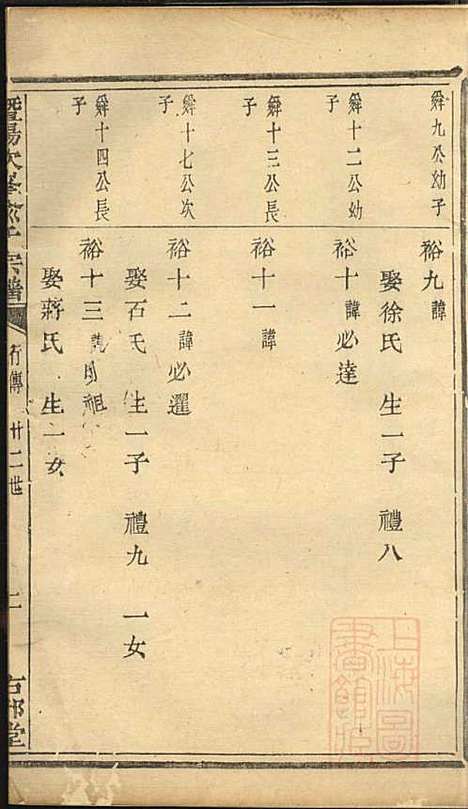 舜九公幼子
裕九諱
娶徐氏 生一子 禮八
舜十二公幼子
裕十諱必達
舜十三公長子
裕十一諱
舜十七公次子
裕十二諱必選
娶石氏 生一子 禮九 一女
舜十四公長子
裕十三諱 祖
娶蔣氏 生一女
暨陽 宗譜
行傳 廿二世
二
堂
上海圖書館